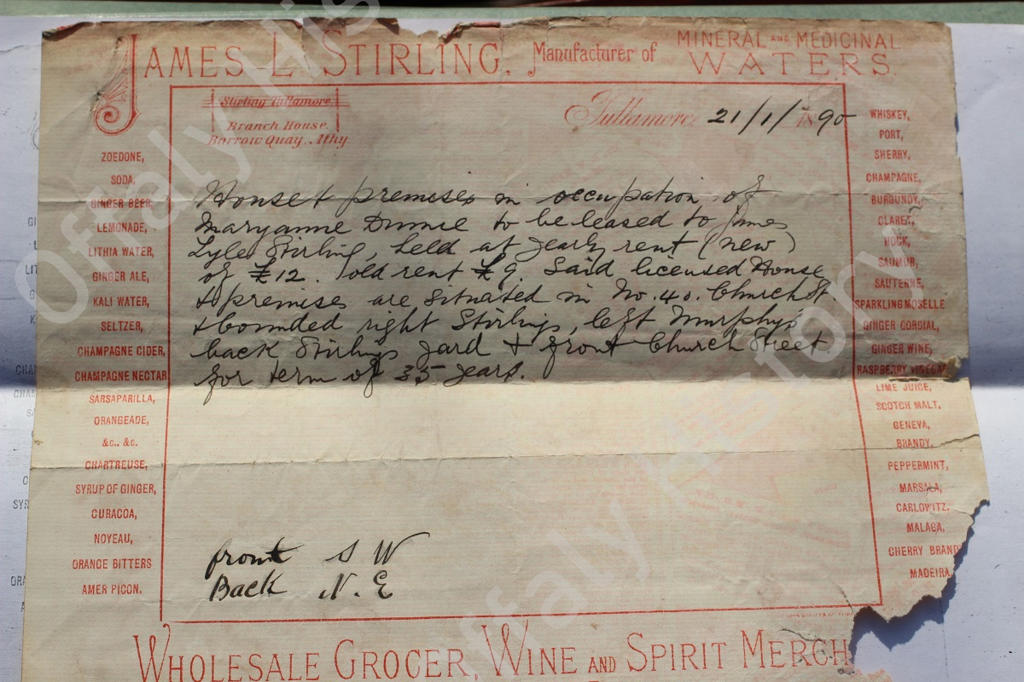 JAMES L. STIRLING. Manufacturer of MINERAL AND MEDICINAL WATERS
Stirling Tullamore.
Branch House.
Barrow Quay., Athy.
Tullamore, 21/1/1890
ZOEDONE,
SODA,
GINGER BEER,
LEMONADE,
LITHIA WATER,
GINGER ALE,
KALI WATER,
SELTZER,
CHAMPAGNE CIDER,
CHAMPAGNE NECTAR
SARSAPARILLA,
ORANGEADE,
&c., &c.
CHARTREUSE,
SYRUP OF GINGER,
CURACOA,
NOYEAU,
ORANGE BITTERS
AMER PICON.
House & premises in occupation of
Maryanne Dunne to be leased to James
Lyle Stirling, held at yearly rent (new)
of £12. old rent £9. Said licensed House
& premises are situated in No. 40. Church St.
& bounded right Stirlings, left Murphys
back Stirlings Yard & front Church Street
for term of 35 years.
front S W
Back N. E
WHISKEY,
PORT,
SHERRY,
CHAMPAGNE,
BURGUNDY,
CLARET,
HOCK,
SAUMUR,
SAUTERNE,
SPARKLING MOSELLE
GINGER CORDIAL,
GINGER WINE,
RASPBERRY VINEGAR
LIME JUICE,
SCOTCH MALT,
GENEVA,
BRANDY,
PEPPERMINT,
MARSALA,
CARLOWITZ,
MALAGA,
CHERRY BRAND
MADEIRA,
WHOLESALE GROCER, WINE AND SPIRIT MERCH
Offaly History
Offaly History